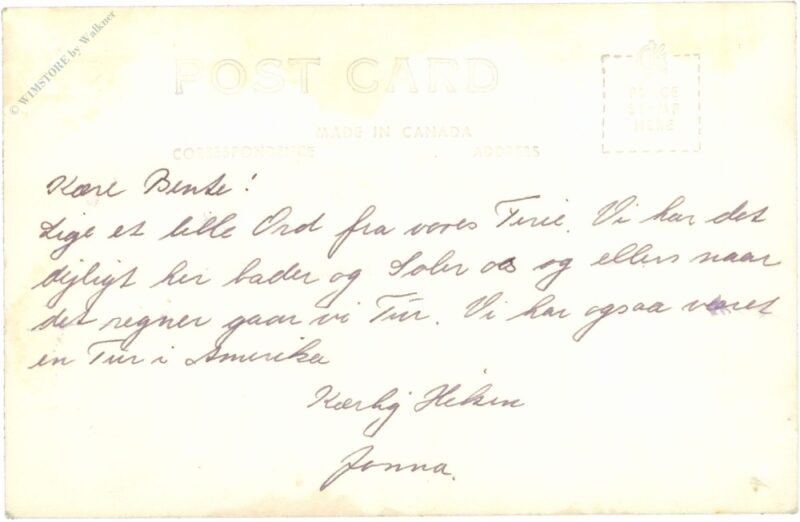 © WIMSTORE by Walkner
POST CARD
PLACE
STAMP
HERE
MADE IN CANADA
CORRESPONDENCE
ADDRESS
Kære Bente!
Lige et lille Ord fra vores Ferie. Vi har det
dejligt her bader og Soler os og ellers naar
det regner gaar vi Tur. Vi har ogsaa været
en Tur i Amerika
Kærlig Hilsen
Jonna.